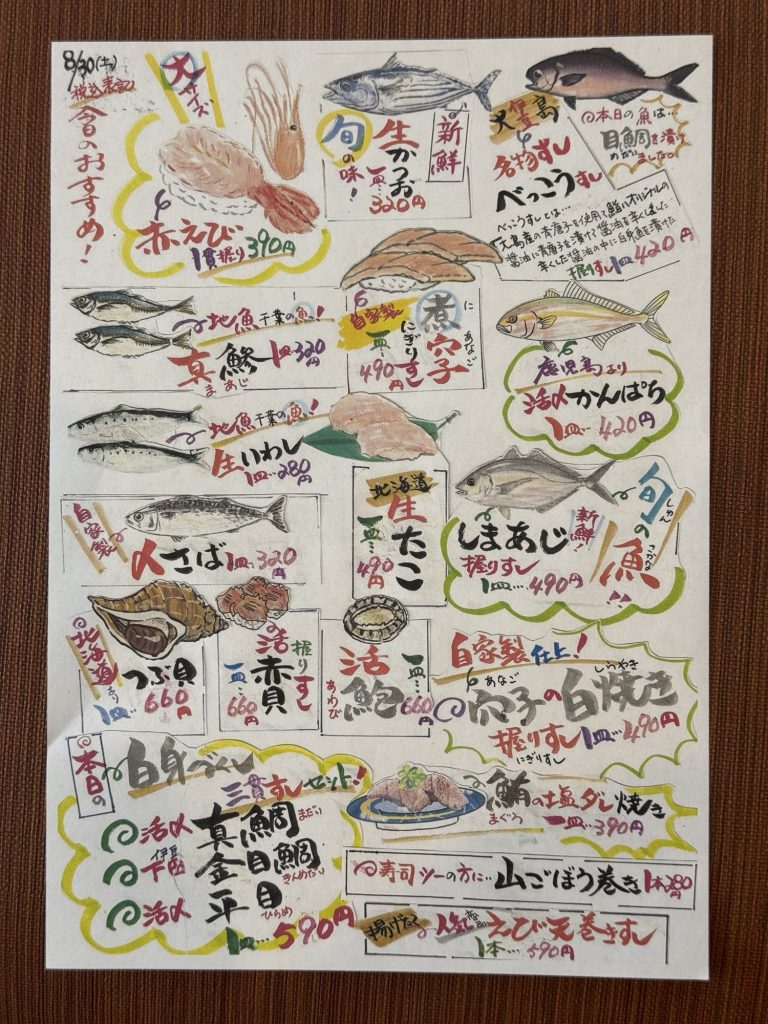 8/30(土)
税込表記
今日のおすすめ!
大サイズ
赤えび
1貫握り390円
新鮮
旬の味!
生かつお
一皿…320円
伊豆大島
名物すし
べっこうすし
本日の魚は…
目鯛を漬け
めだい
ました。
べっこうすしとは…
大島産の青唐子を使用して
醤油に青唐子を漬けて醤油を辛くしました
辛くした醤油の中に白身魚を漬けた
握りすし1皿420円
地魚千葉の魚!
真鯵1皿320円
まあじ
自家製
煮穴子
に あなご
にぎりすし
一皿…490円
鹿児島より
活〆かんぱち
1皿…420円
地魚千葉の魚!
生いわし
1皿…280円
北海道
生たこ
一皿…490円
旬の魚!!
しゅん さかな
新鮮!
しまあじ
握りすし
1皿…490円
自家製
〆さば1皿…320円
北海道より
つぶ貝
1皿…660円
活赤貝
握りすし
一皿…660円
活鮑
あわび
一皿…660円
自家製仕上!
あなご しらやき
穴子の白焼き
握りすし1皿…490円
にぎりすし
本日の
白身づくし
三貫すしセット!
活〆真鯛
まだい
伊豆
下田金目鯛
きんめだい
活〆平目
ひらめ
1皿…590円
鮪の塩ダレ焼き
まぐろ
一皿…390円
寿司ツーの方に…山ごぼう巻き1本280円
揚げたて
人気商品
えび天巻きすし
1本…590円